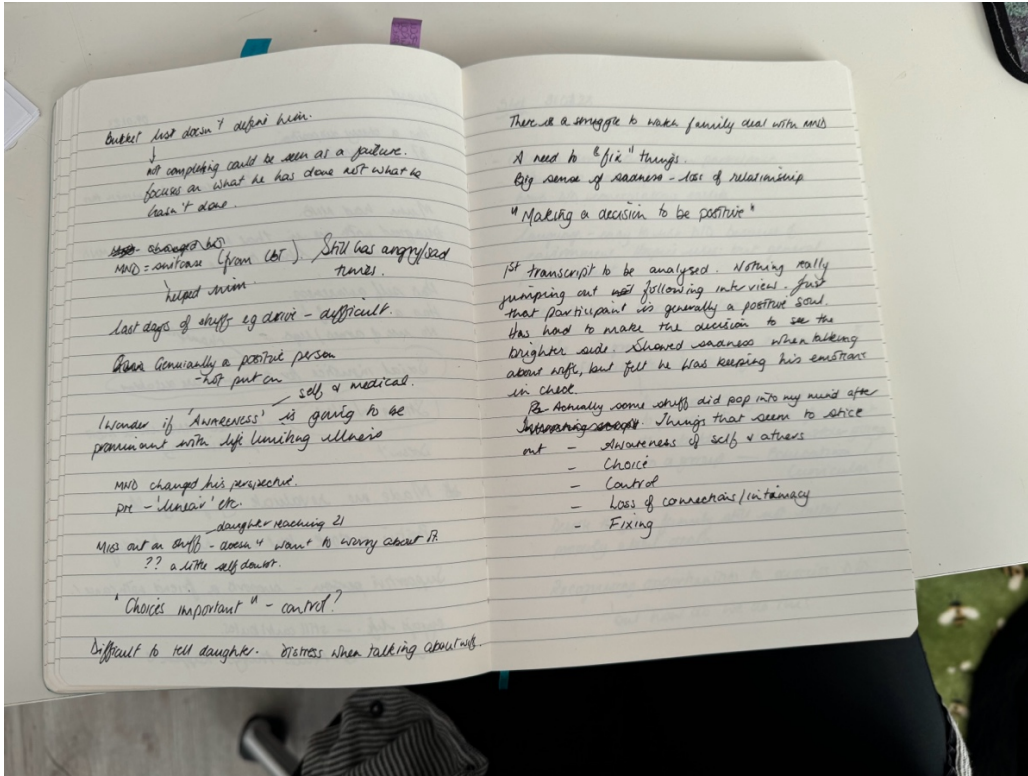 Bucket list doesn't define him.
↓
not completing could be seen as a failure.
focuses on what he has done not what he
hasn't done.
MND = suitcase (from CBT). Still has angry/sad
times.
helped him.
last days of stuff eg drive - difficult.
Genuinally a positive person
- not put on
self & medical.
I wonder if 'AWARENESS' is going to be
prominent with life limiting illness
MND changed his perspective.
pre - 'linear' etc.
daughter reaching 21
Miss out on stuff - doesn't want to worry about it.
?? a little self doubt.
"Choices important" - control?
Difficult to tell daughter. Distress when talking about wife.
There is a struggle to watch family deal with MND
A need to "fix" things.
Big sense of sadness - loss of relationship
"Making a decision to be positive"
1st transcript to be analysed. Nothing really
jumping out following interview. Just
that participant is generally a positive soul.
Has had to make the decision to see the
brighter side. Showed sadness when talking
about wife, but felt he was keeping his emotions
in check.
Actually some stuff did pop into my mind after
Things that seem to stick
out - Awareness of self & others
- Choice
- Control
- Loss of connections/intimacy
- Fixing